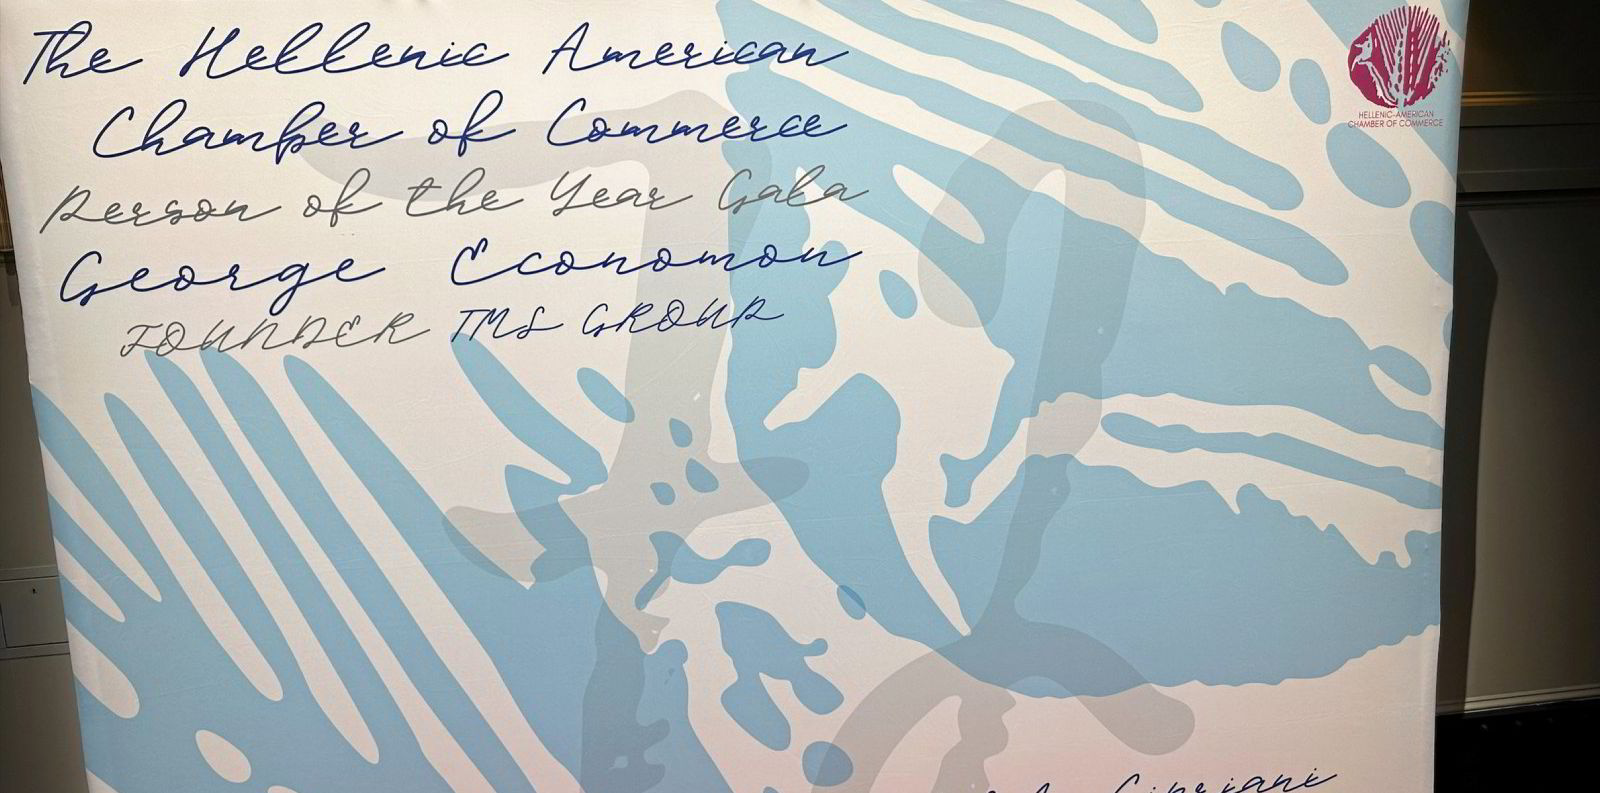 The Hellenic American
Chamber of Commerce
Person of the Year Gala
George Economou
FOUNDER TMS GROUP
HELLENIC-AMERICAN
CHAMBER OF COMMERCE
Cipriani